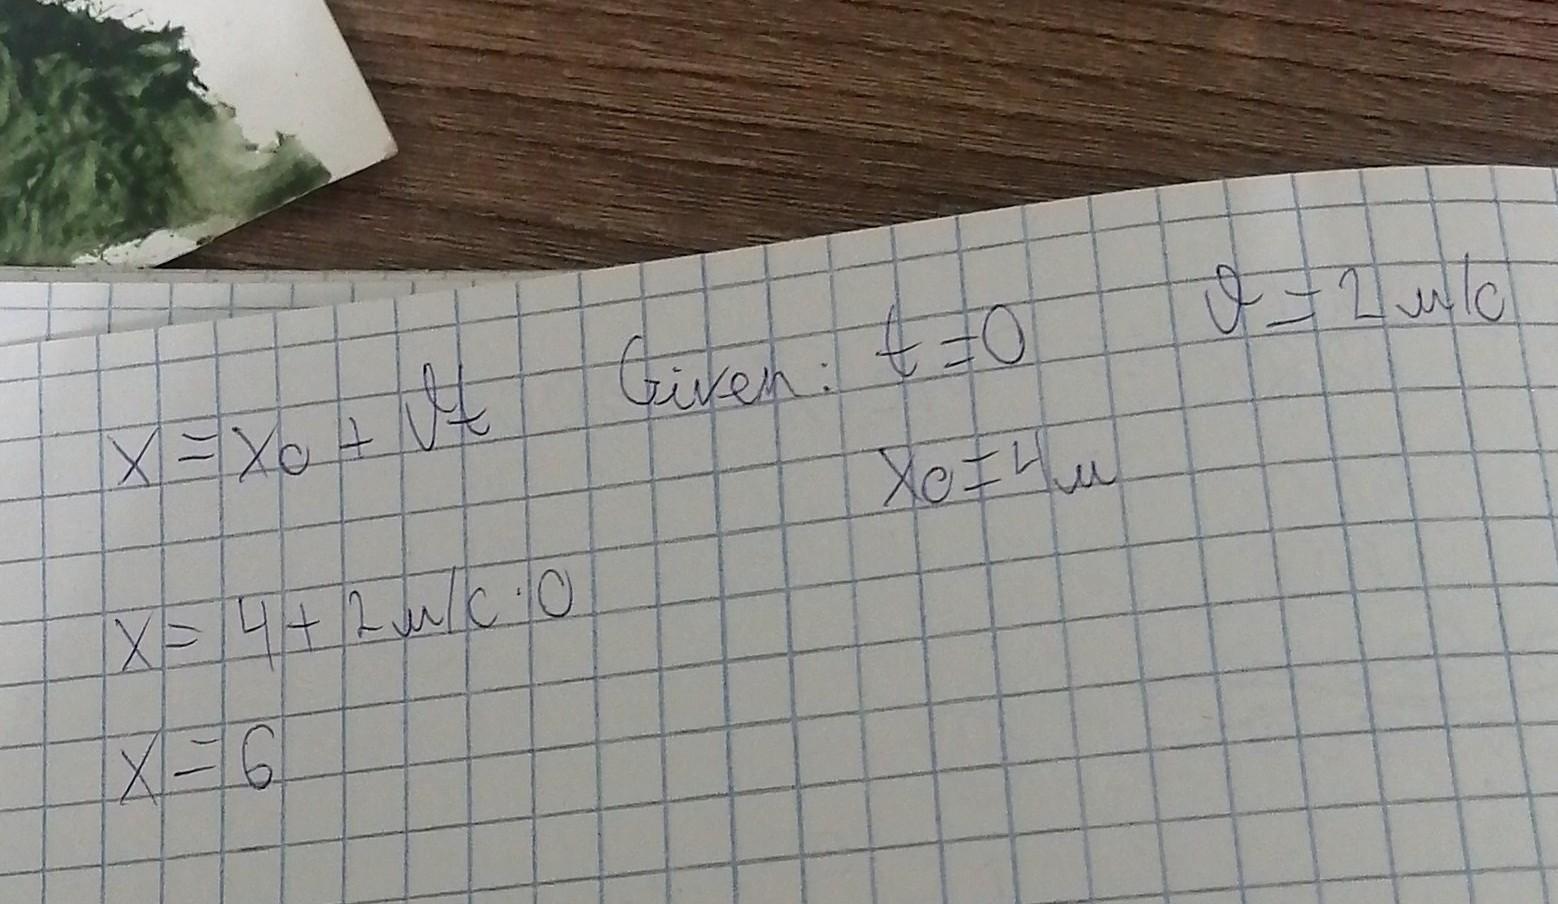 x = x₀ + ϑt Given: t = 0 ϑ = 2 м/с
x₀ = 4м
x = 4 + 2 м/с · 0
x = 6